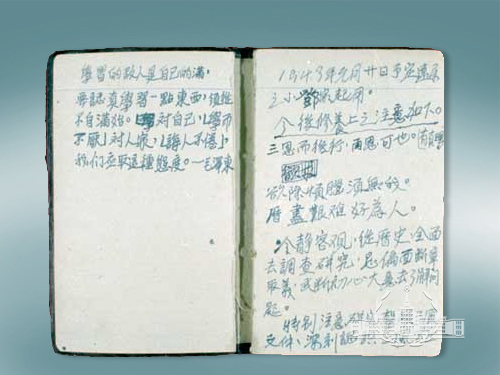 學習的敵人是自己的滿,
要認真學習一點東西,須從
不自滿始。對自己,「學而
不厭」對人家,「誨人不倦」,
我們應取這種態度。—毛澤東
1943年元月廿日于
之小起用。
今後修養上之注意如下。
三思而後行,兩思可也。
欲除煩惱須無我。
歷盡艱難好為人。
冷靜客观,從歷史全面
去調查研究,忌偏面斷章
取義,武断初心大意去了解問
題。
特别注意研究
文件,深刻